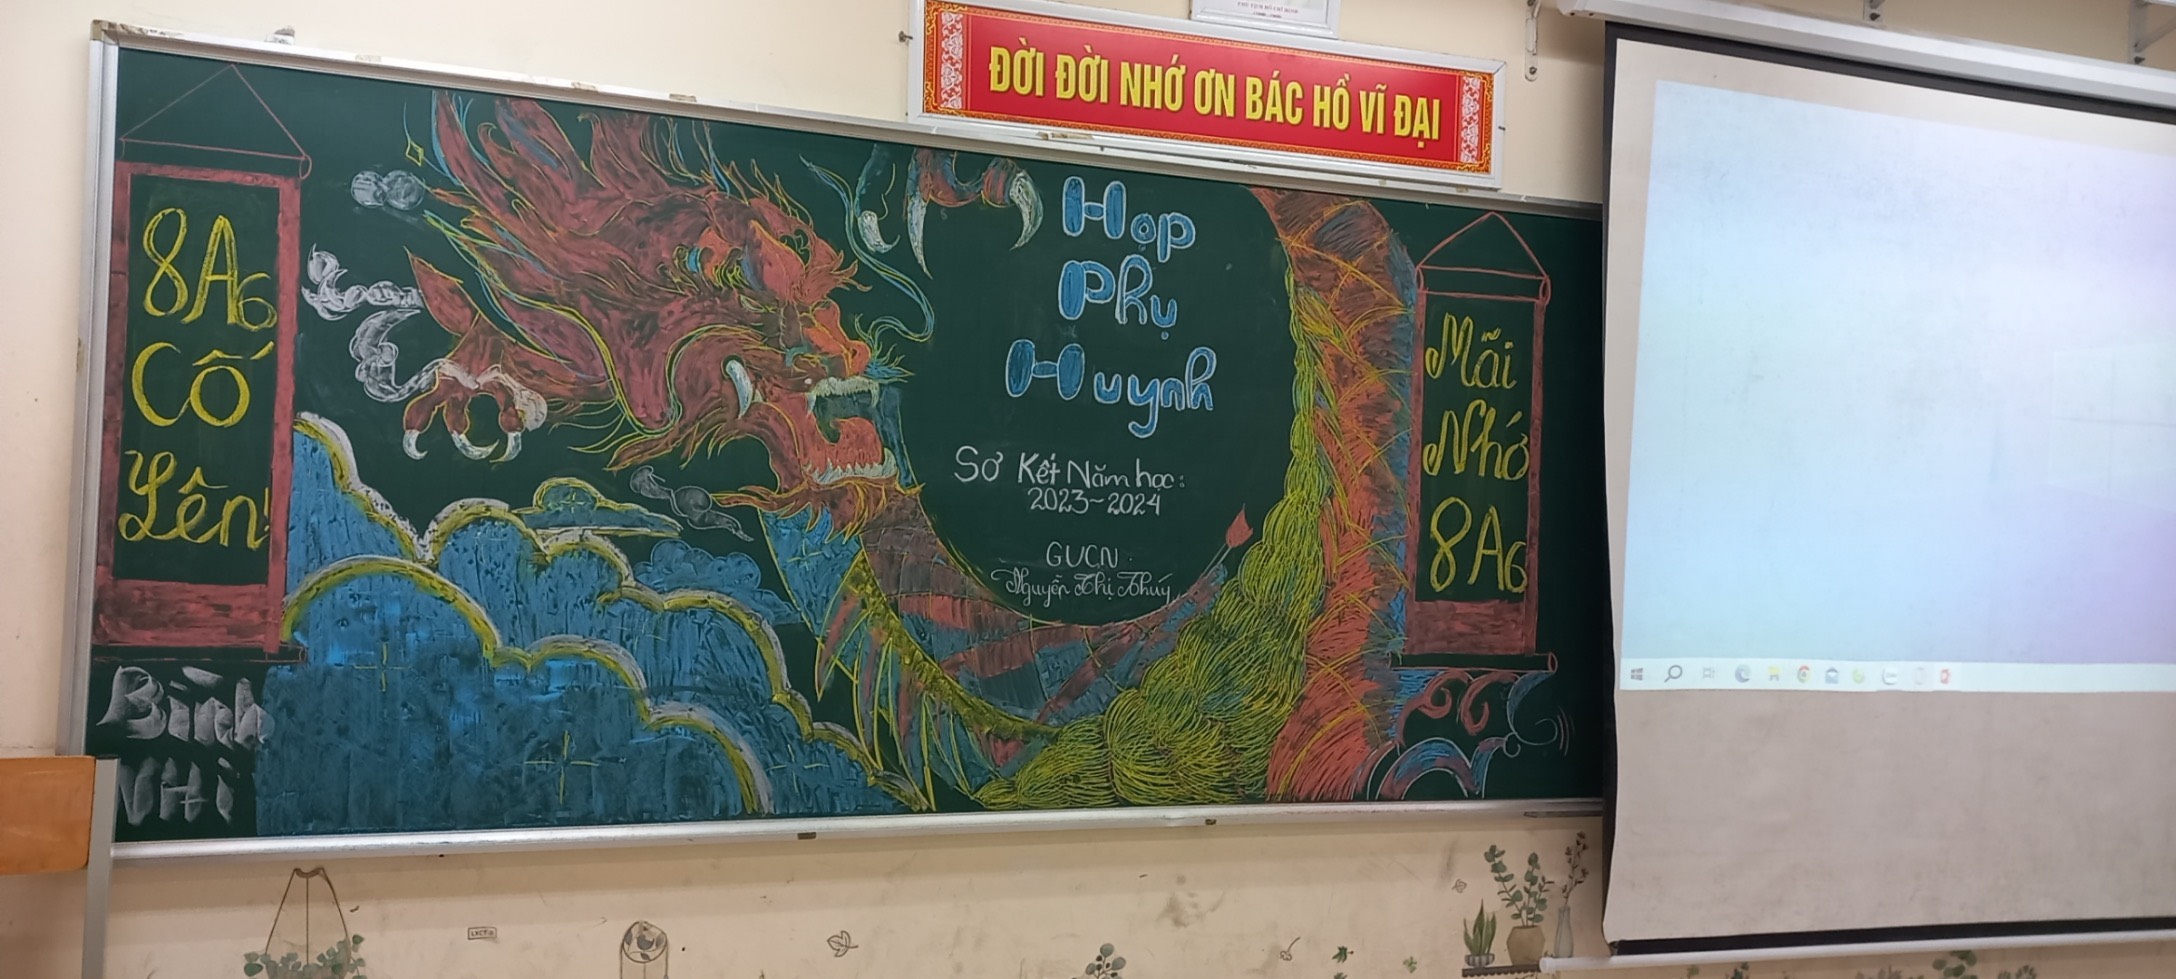 CHỦ TỊCH HỒ CHÍ MINH
ĐỜI ĐỜI NHỚ ƠN BÁC HỒ VĨ ĐẠI
8A6
Cố
Lên!
Bình
Nhi
Họp
Phụ
Huynh
Sơ Kết Năm học:
2023~2024
GVCN
Nguyễn Thị Thúy
Mãi
Nhớ
8A6